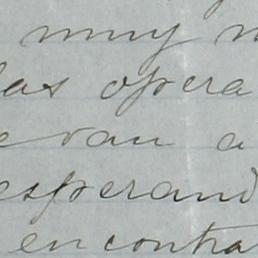 muy
las opera
van a
esperand
encontra